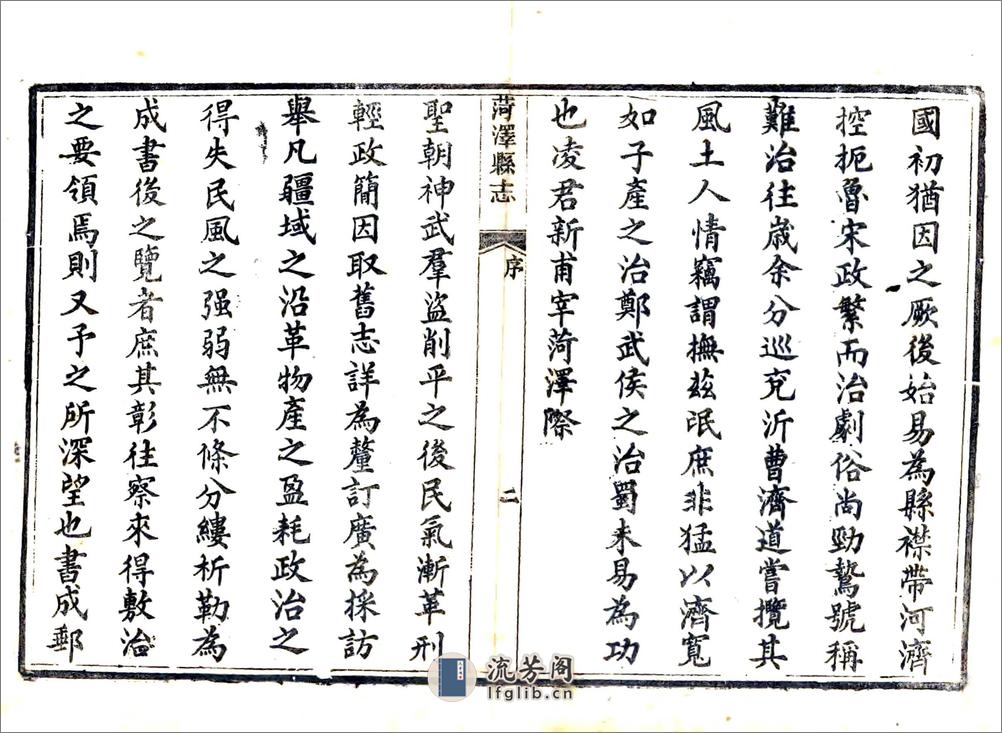 國初猶因之厥後始易為縣襟帶河濟
控扼魯宋政繁而治劇俗尚勁鷙號稱
難治往歲余分巡兖沂曹濟道嘗攬其
風土人情竊謂撫茲氓庶非猛以濟寬
如子產之治鄭武侯之治蜀未易為功
也凌君新甫宰菏澤際
菏澤縣志
序
二
聖朝神武羣盜削平之後民氣漸革刑
輕政簡因取舊志詳為釐訂廣為採訪
舉凡疆域之沿革物產之盈耗政治之
得失民風之强弱無不條分縷析勒為
成書後之覽者庶其彰往察來得敷治
之要領焉則又予之所深望也書成郵
流芳阁
lfglib.cn